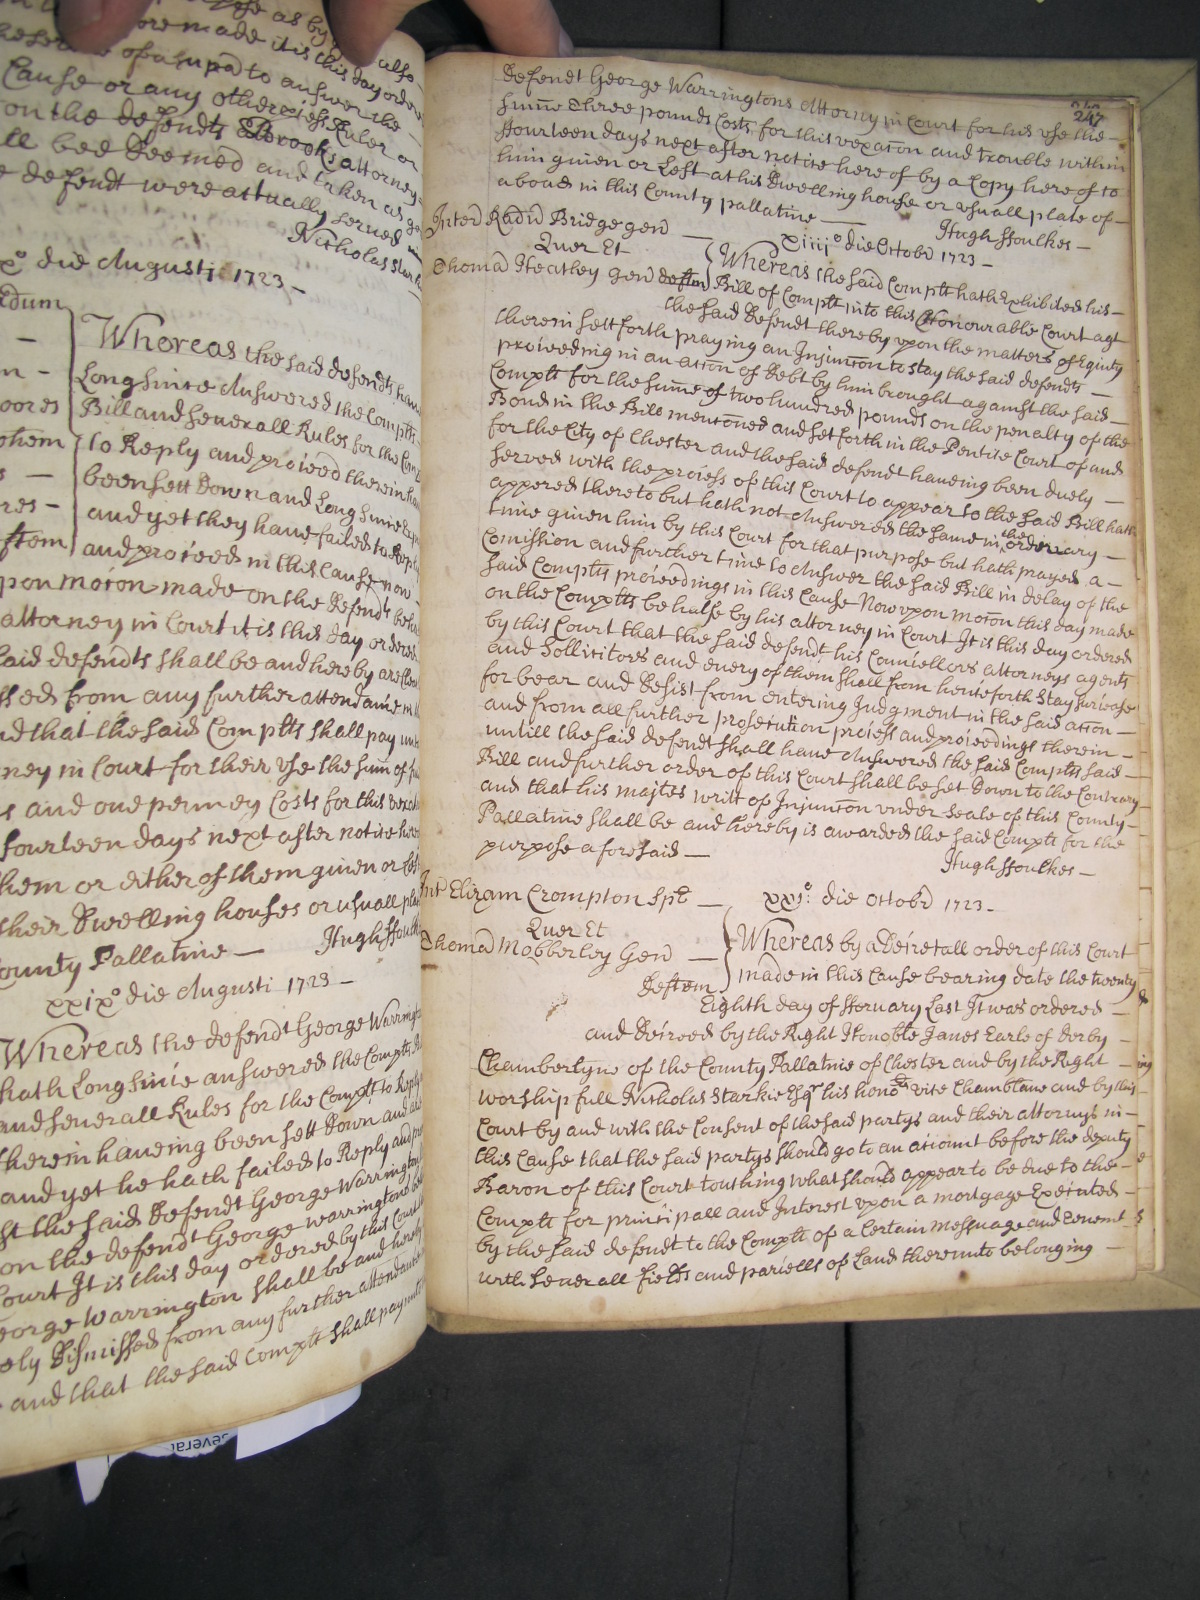 ore made it is this day order
to answer the
Cause or any other Ruler or
on the defendts Brooks attorney
ll bee Deemed and taken as
e defendt were actually served
Nicholas Stark
xo die Augusti 1723
Whereas the said defendts have
Long since Answered the Complts
Bill and severall Rules for the Com
to Reply and proceed therein
been sett Down and Long since
and yet they have failed to Reply
and proceed in this Cause now
pon mocon made on the Defendts beha
attorney in Court it is this day ordered
said defendts shall be and hereby are
ssed from any further attendance
nd that the said Complts shall pay unto
ney in Court for their use the sum of
s and one penney Costs for this
fourteen days next after notice
hem or either of them given or Left
their Dwelling houses or usuall pla
County Pallatine — Hugh ffou
xxixo die Augusti 1723 —
Whereas the defendt George Warringt
hath Long since answered the Complts
and severall Rules for the Complt to Reply
therein haveing been sett Down and
and yet he hath failed to Reply and
st the said Defendt George Warrington
on the defendt George Warringtons
Court It is this day ordered by this Court
eorge Warrington shall be and hereby
ely Dismissed from any further attendance
and that the said Complt shall pay unto
several
247
defendt George Warringtons Attorny in Court for his use the —
summe Three pounds Costs for this vexacon and trouble within
ffourteen days next after notice here of by a Copy here of to
him given or Left at his Dwelling house or usuall place of —
aboad in this County pallatine — Hugh ffoulkes —
Inter Radu Bridge gen —
Quer Et
Thoma Heatley gen deften
xiiijo die Octobr 1723 —
Whereas the said Complt hath Exhibited his —
Bill of Complt into this Honourable Court agt
the said Defendt thereby upon the matters of Equity
therein sett forth praying an Injuncon to stay the said defendts —
proceeding in an accon of Debt by him brought against the said —
Complt for the summe of two hundred pounds on the penalty of the
Bond in the Bill mentoned and set forth in the Pentice Court of and
for the City of Chester and the said defendt haveing been duely —
served with the process of this Court to appear to the said Bill hath
appered thereto but hath not Answered the same in the ordinary —
time given him by this Court for that purpose but hath prayed a —
Comission and further time to Answer the said Bill in delay of the
said Complts proceedings in this Cause Now upon mocon this day made
on the Complts behalfe by his attorney in Court It is this day ordered
by this Court that the said defendt his Councellors attorneys agents
and Sollicitors and every of them shall from henceforth Stay surcease
for bear and Desist from entering Judgment in the said accon —
and from all further prosecution process and proceedings therein —
untill the said defendt shall have Answered the said Complts said —
Bill and further order of this Court shall be set Down to the Contrary
and that his majtes writt of Injuncon under seale of this County —
Pallatine shall be and hereby is awarded the said Complt for the
purpose aforesaid — Hugh ffoulkes —
Int Elizam Crompton Spt —
Quer Et
Thoma Mobberley Gen —
Deftem
xxjo die Octobr 1723 —
Whereas by a Decretall order of this Court
made in this Cause bearing date the twenty
Eighth day of ffebruary Last It was ordered —
and Decreed by the Right Honoble James Earle of Derby —
Chamberlyne of the County Pallatine of Chester and by the Right —
worshipfull Nicholas Starkie Esqr his honobs vice Chamblane and by this
Court by and with the Consent of the said partys and their attornys in —
this Cause that the said partys should go to an account before the deputy
Baron of this Court touching what should appear to be due to the —
Complt for principall and Interest upon a mortgage Executed —
by the said defendt to the Complt of a Certain messuage and Tenemt
wth severall fields and parcells of Land thereunto belonging —